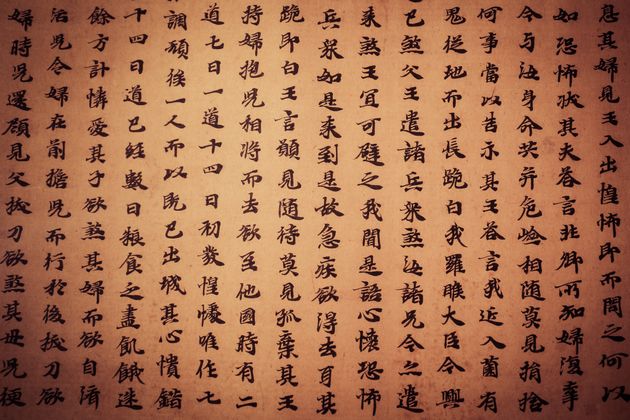 息其婦見王入出惶怖即而問之何以
如恐怖狀其夫答言非卿所知婦復牽
今与汝身命共并危嶮相随莫見捐捨
何事當以告示其王答言我近入薗有
鬼從地而出長跪白我羅睺大臣今興
已煞父王遣諸兵衆煞汝諸兄今之遣
来煞王冝可避之我聞是語心懷恐怖
兵衆如是来到是故急疾欲得去耳其
跪即白王言願見随侍莫見孤棄其王
持婦抱兒相將而去欲至他國時有二
道七日一道十四日初發惶懅唯作七
調頋後一人而以既已出城其心憒錯
十四日道已經數日粮食之盡飢餓迷
餘方計憐愛其子欲煞其婦而欲自濟
活兒令婦在前擔兒而行於後拔刀欲
婦時兒還頋見父拔刀欲煞其母兒便